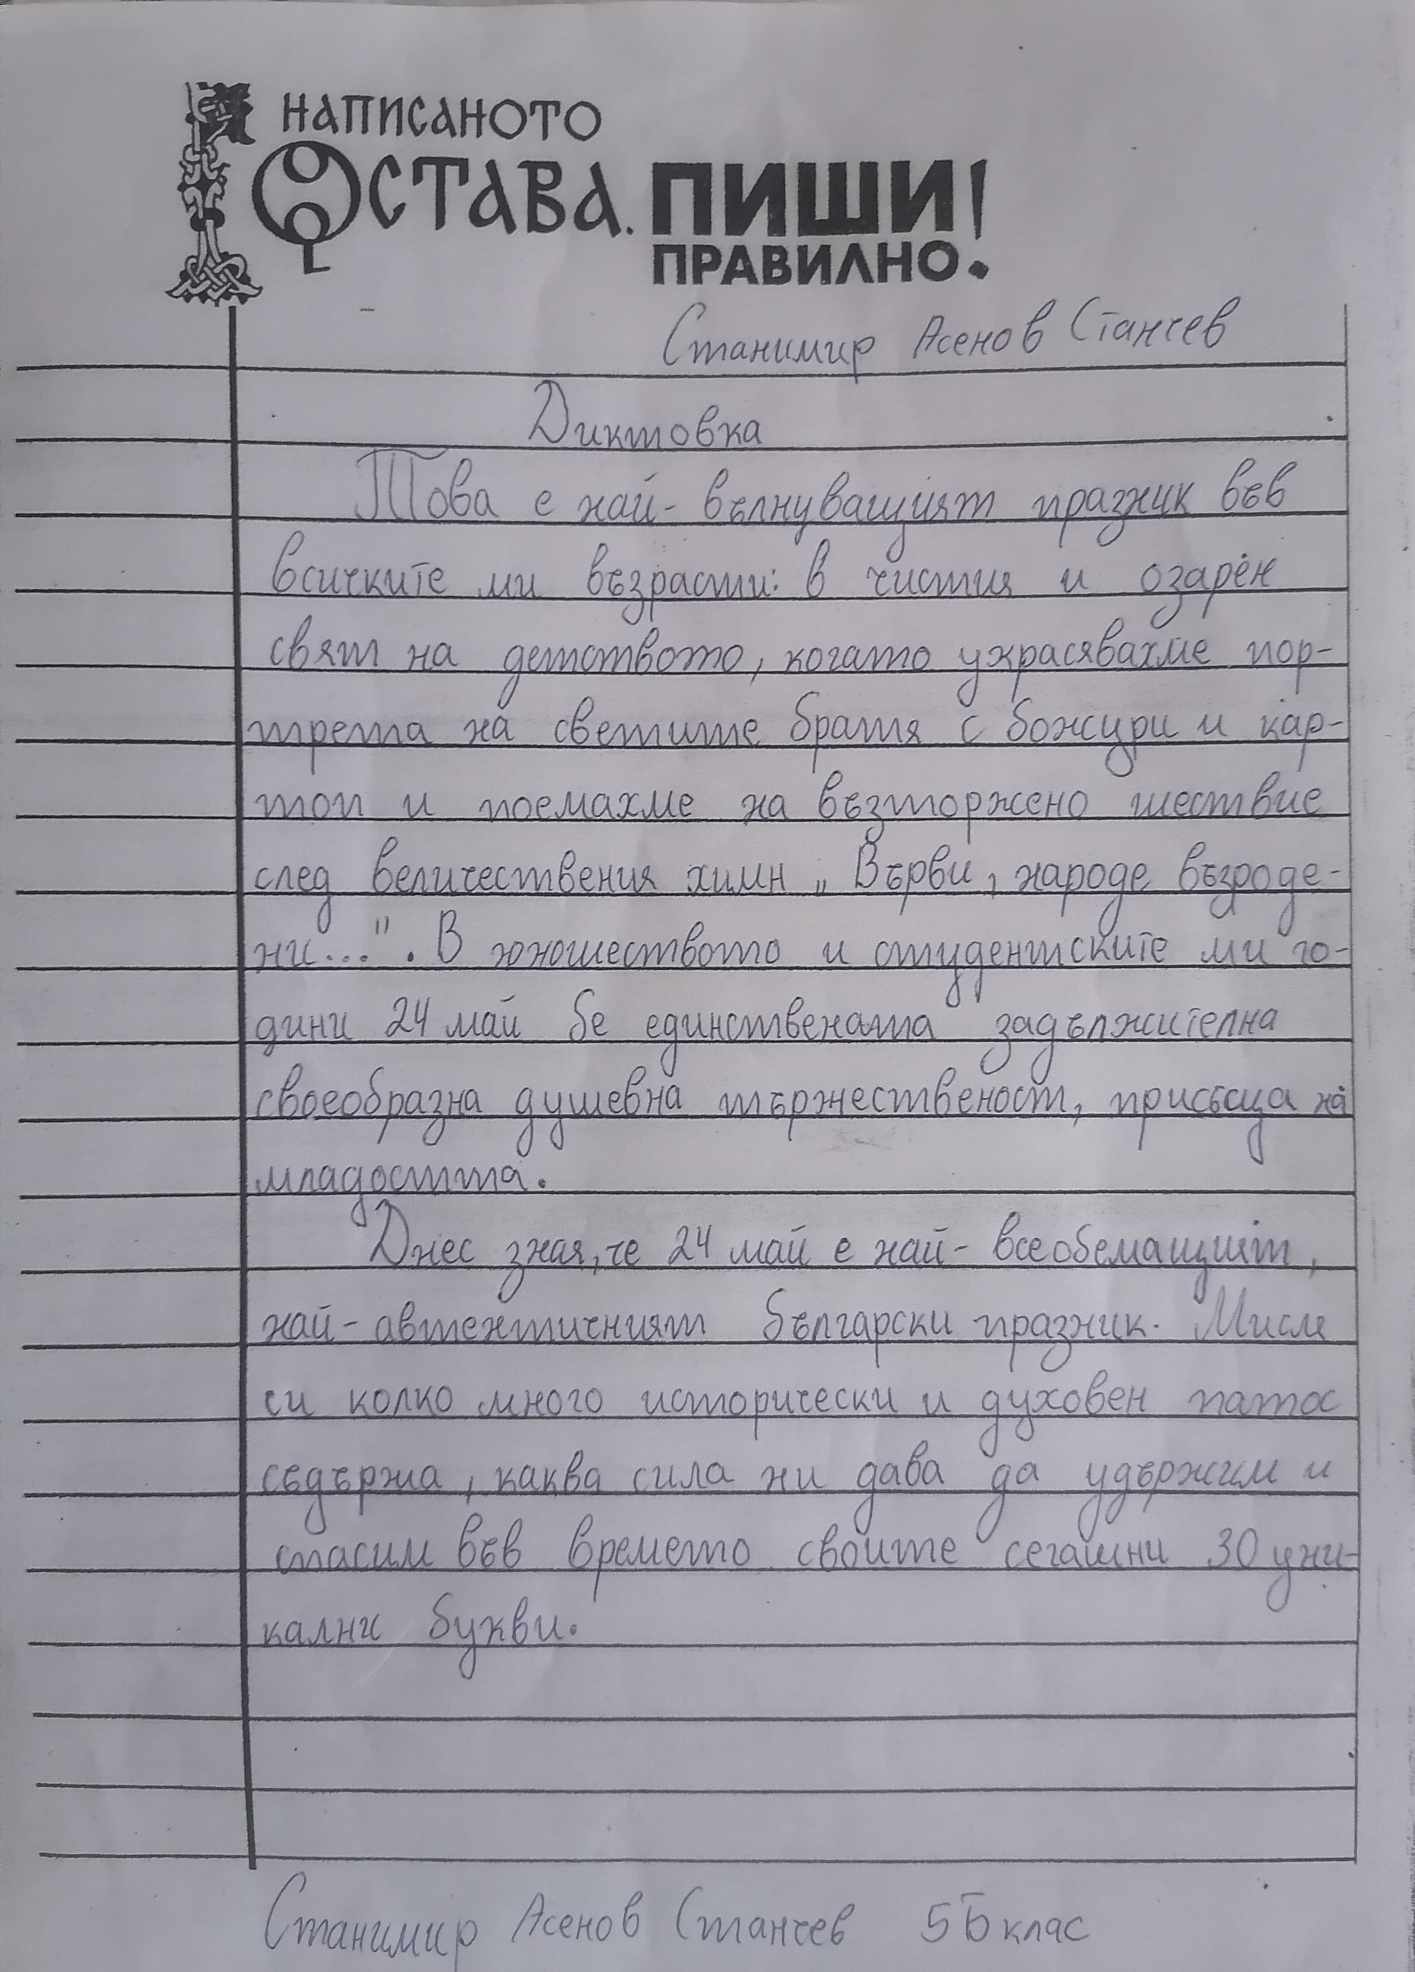 НАПИСАНОТО
ОСТАВА. ПИШИ!
ПРАВИЛНО.
Станимир Асенов Станчев
Диктовка
Това е най-вълнуващият празник във
всичките ми възрасти: в чистия и озарен
свят на детството, когато украсявахме пор-
трета на светите братя с божури и кар-
топ и поемахме на възторжено шествие
след величествения химн „Върви, народе възроде-
ни...". В юношеството и студентските ми го-
дини 24 май бе единствената задължителна
своеобразна душевна тържественост, присъща на
младостта.
Днес зная, че 24 май е най-всеобемащият,
най-автентичният български празник. Мисля
си колко много исторически и духовен патос
съдържа, каква сила ни дава да удържим и
спасим във времето своите сегашни 30 уни-
кални букви.
Станимир Асенов Станчев 5Б клас